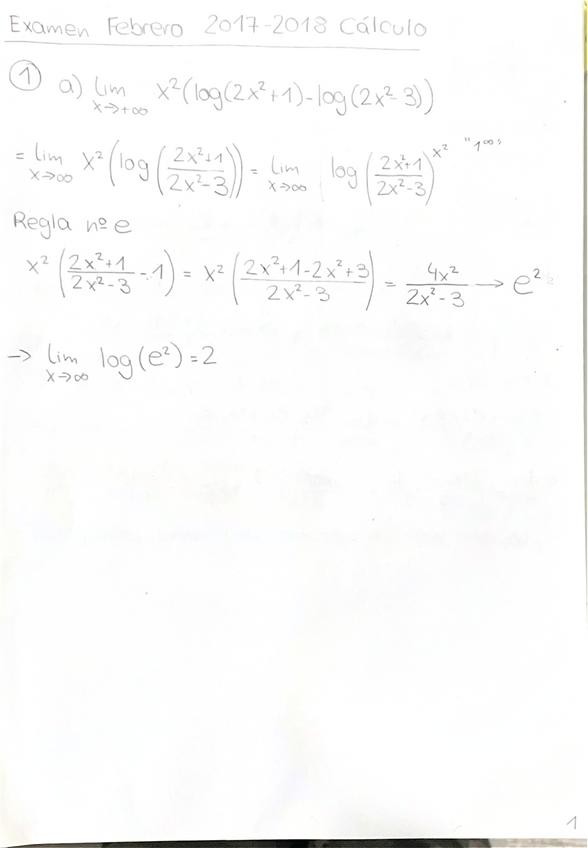 Examen Febrero 2017-2018 Cálculo
① a) lim x→+∞ x²(log(2x²+1)-log(2x²-3))
= lim x→∞ x²(log((2x²+1)/(2x²-3))) = lim x→∞ log((2x²+1)/(2x²-3))^x² "1^∞"
Regla nº e
x²((2x²+1)/(2x²-3) - 1) = x²((2x²+1-2x²+3)/(2x²-3)) = 4x²/(2x²-3) → e²
→ lim x→∞ log(e²)=2
1